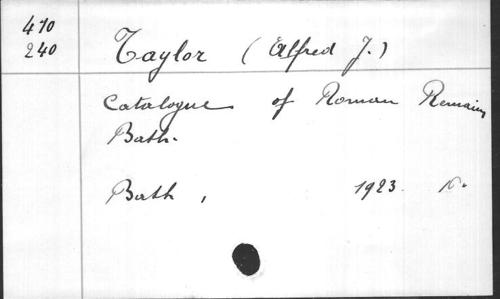 470
240
Taylor (Alfred J.)
Catalogue of Roman Remains
Bath.
Bath, 1923. 16°